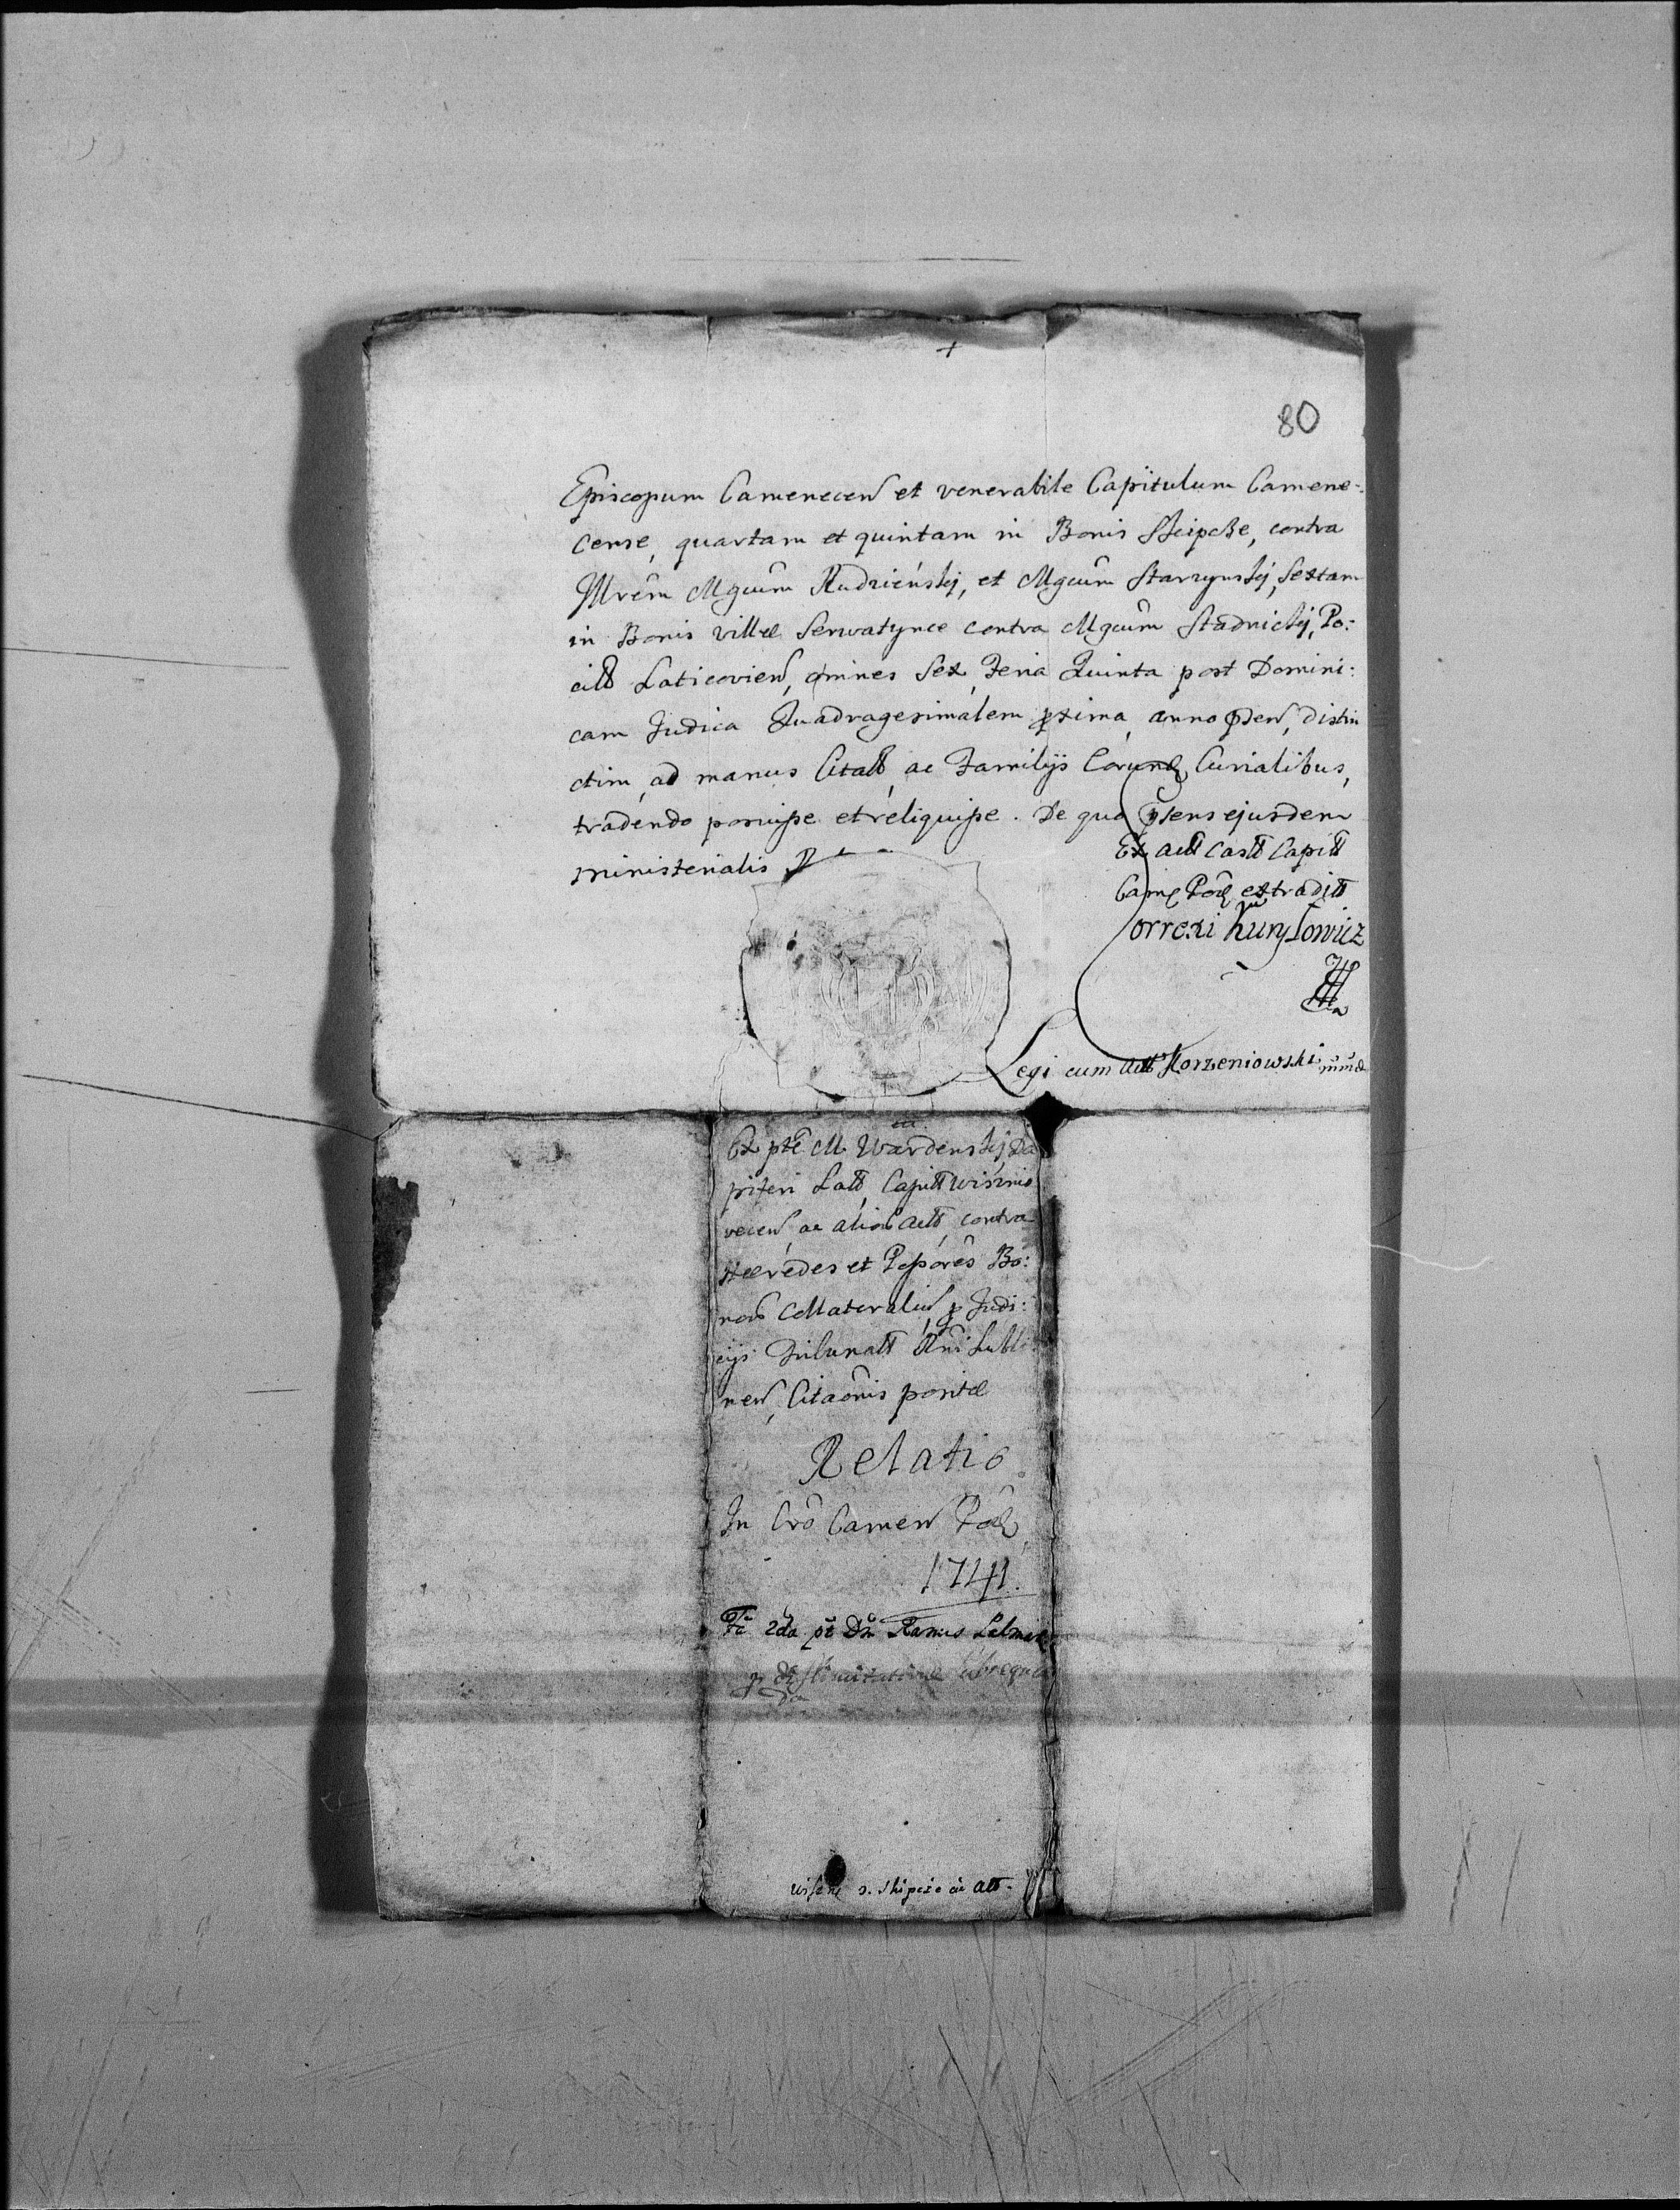 80
Episcopum Camenecen et venerabile Capitulum Camene-
cense, quartam et quintam in Bonis Skipcze, contra
Illrem Mgcum Rudzieńskij, et Mgcum Starzynskij, Sextam
in Bonis villæ Serwatynce contra Mgcum Stadnickij, Po:
cill Laticovien, omnes Sex, Feria Quinta post Domini:
cam Judica Quadragesimalem pxima, anno psen, distin
ctim, ad manus Citatt, ac Familijs Eorund Curialibus,
tradendo posuisse et reliquisse. De quo psens ejusdem
ministerialis R
Ex actt Castt Capitt
Camen Pod extradítt
Correxi Kurylowicz
Legi cum actt Korzeniowski mmp
Ex pte M Wardenskij Da
piferi Latt, Capitt wiśnio
vecen, ac alior actt, contra
Hæredes et Possores Bo:
nor Collateraliu, p Judi:
cijs Tribunatt Rni Lubli
nen, Citaonis positæ
Relatio
In Cro Camen Pod
1741.
Fa 2da pt Dn Ramis
Skipcze ac att.